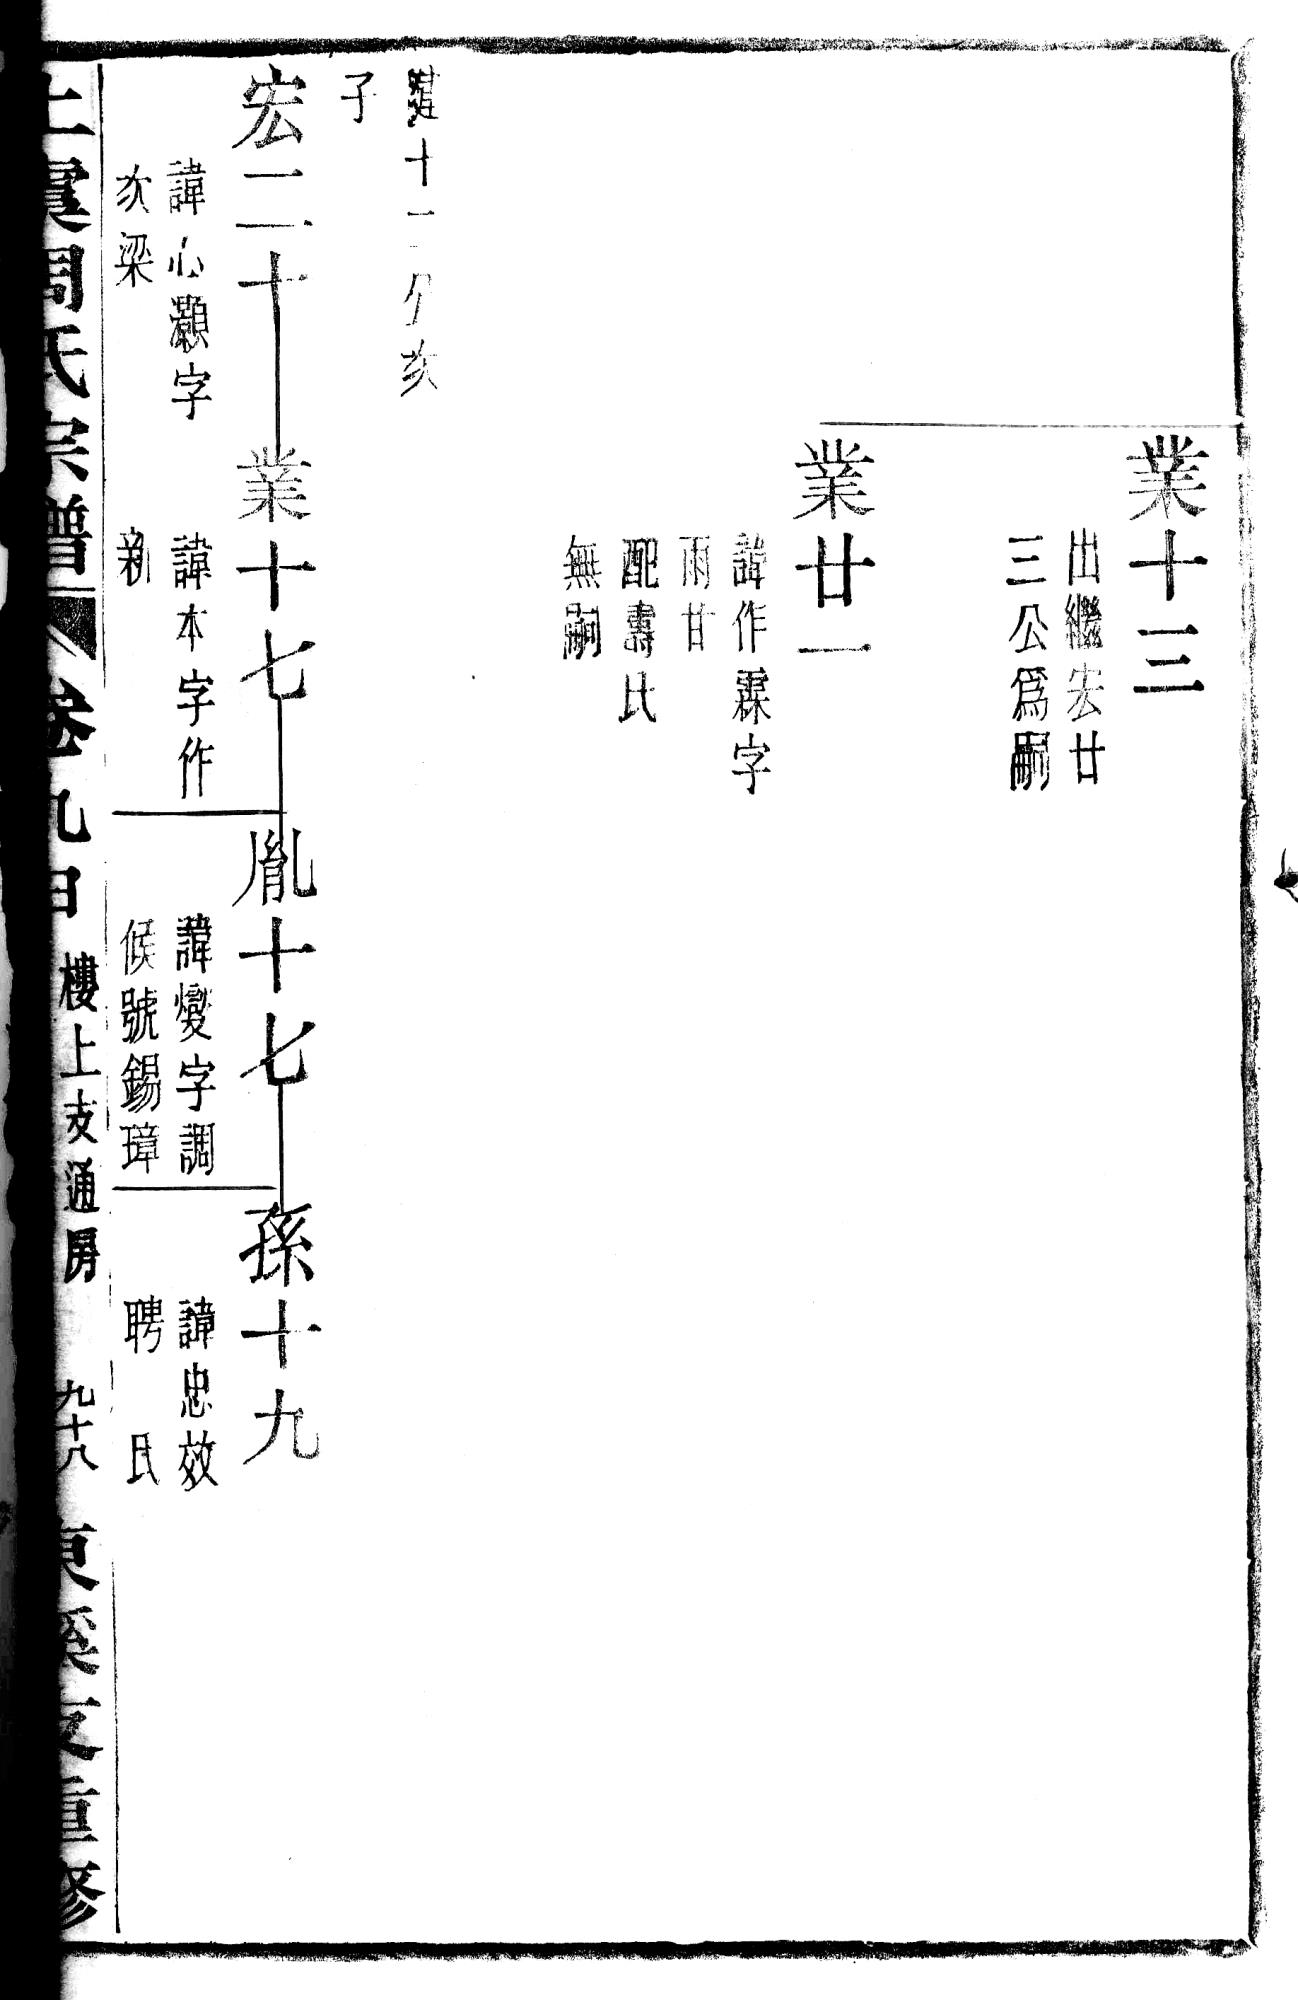 業十三
出繼宏廿
三公爲嗣
業廿一
諱作霖字
雨甘
配壽氏
無嗣
十二公次
子
宏二十
諱心灝字
次梁
業十七
諱本字作
新
胤十七
諱燮字調
候號錫璋
孫十九
諱忠效
聘 氏
上虞周氏宗譜 卷九甲 樓上支通房 九十八 東溪支重修